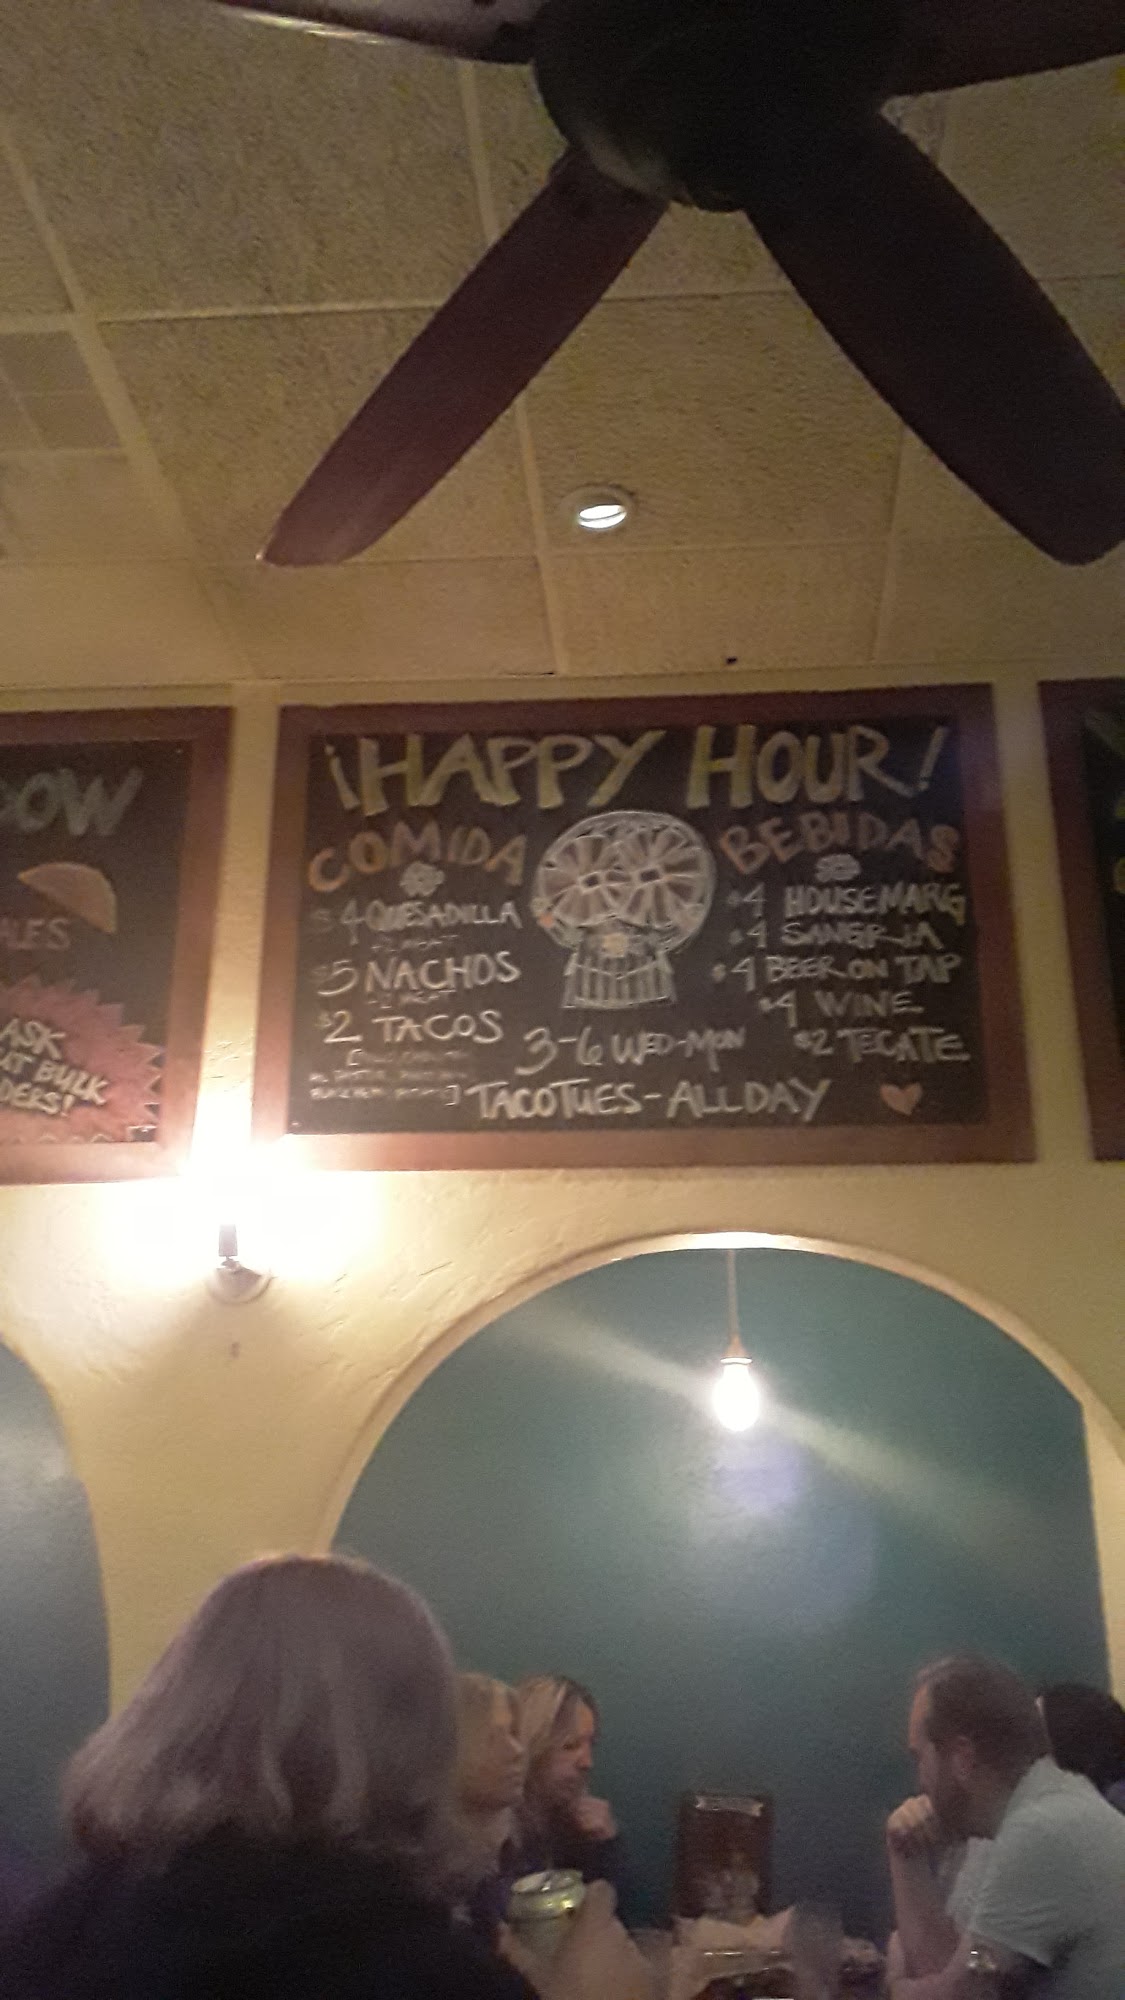 ¡HAPPY HOUR!
COMIDA
$4 QUESADILLA
+2 MEAT
$5 NACHOS
+2 MEAT
$2 TACOS
BEBIDAS
$4 HOUSE MARG
$4 SANGRIA
$4 BEER ON TAP
$4 WINE
$2 TECATE
3-6 WED-MON
TACOTUES-ALLDAY
OW
ALES
ASK
AT BULK
DERS!